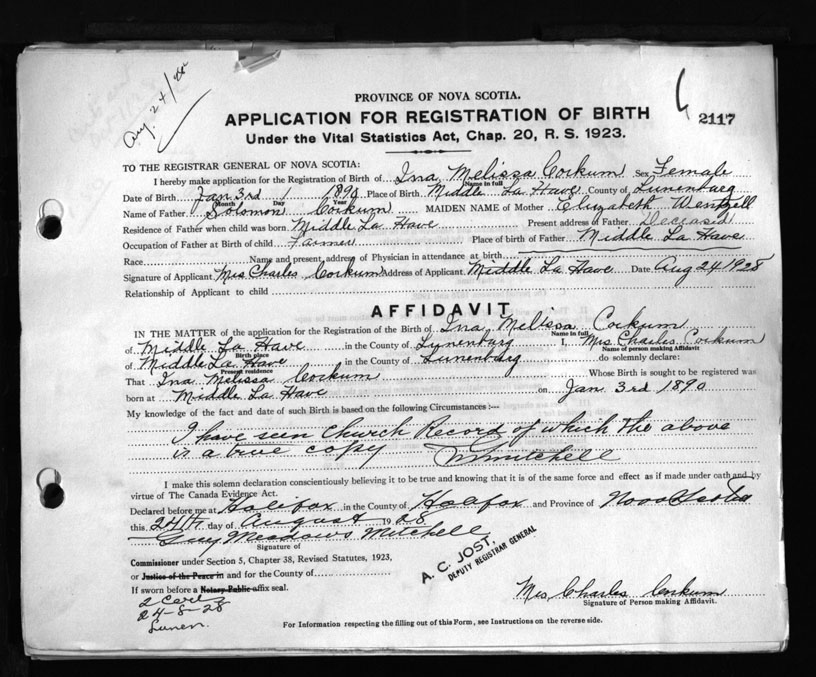 Aug. 24/28
PROVINCE OF NOVA SCOTIA.
APPLICATION FOR REGISTRATION OF BIRTH
2117
Under the Vital Statistics Act, Chap. 20, R. S. 1923.
TO THE REGISTRAR GENERAL OF NOVA SCOTIA:
I hereby make application for the Registration of Birth of Ina Melissa Corkum Sex Female
Name in full
Date of Birth Jan 3rd 1890 Place of Birth Middle La Have County of Lunenburg
Month Day Year
Name of Father Solomon Corkum MAIDEN NAME of Mother Elizabeth Wentzell
Residence of Father when child was born Middle La Have Present address of Father Deceased
Occupation of Father at Birth of child Farmer Place of birth of Father Middle La Have
Race Name and present address of Physician in attendance at birth
Signature of Applicant Mrs Charles Corkum Address of Applicant Middle La Have Date Aug 24 1928
Relationship of Applicant to child
AFFIDAVIT
IN THE MATTER of the application for the Registration of the Birth of Ina Melissa Corkum
Name in full
of Middle La Have in the County of Lunenburg I, Mrs Charles Corkum
Birth place Name of person making Affidavit
of Middle La Have in the County of Lunenburg do solemnly declare:
Present residence
That Ina Melissa Corkum Whose Birth is sought to be registered was
born at Middle La Have on Jan 3rd 1890
My knowledge of the fact and date of such Birth is based on the following Circumstances:—
I have seen Church Record of which the above
is a true copy Mitchell
I make this solemn declaration conscientiously believing it to be true and knowing that it is of the same force and effect as if made under oath and by
virtue of The Canada Evidence Act.
Declared before me at Halifax in the County of Halifax and Province of Nova Scotia
this 24th day of August 1928
Guy Meadows Mitchell
Signature of
Commissioner under Section 5, Chapter 38, Revised Statutes, 1923,
or Justice of the Peace in and for the County of
If sworn before a Notary Public affix seal.
A. C. JOST,
DEPUTY REGISTRAR GENERAL
Mrs Charles Corkum
Signature of Person making Affidavit.
24-8-28
Lunen.
For Information respecting the filling out of this Form, see Instructions on the reverse side.